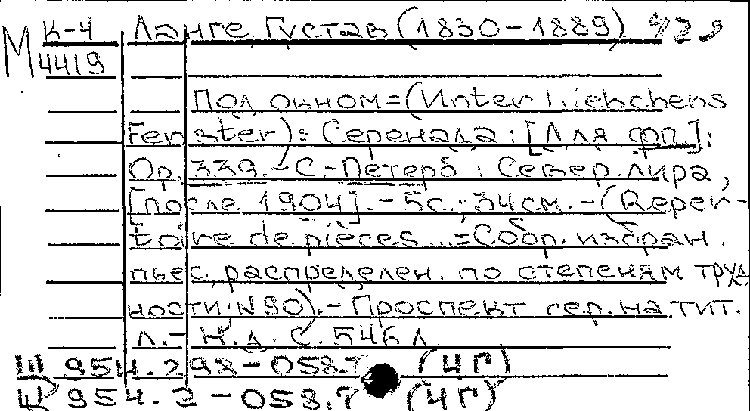 М К-4 Ланге, Густав (1830-1889)
4419
Под окном = (Unter Liebchens
Fenster): Серенада: [Для фп.]:
Op. 339. - С.-Петерб.: Север. лира,
[после 1904]. - 5с.; 34см. - (Reper-
toire de pièces ... = Собр. избран.
пьес, распределен. по степеням труд
ности: N 90). - Проспект сер. на тит.
л. - Н.д. С. 546 Л
Ш 954.298-058.7 (4Г)
Ц 954.2-058.7 (4Г)